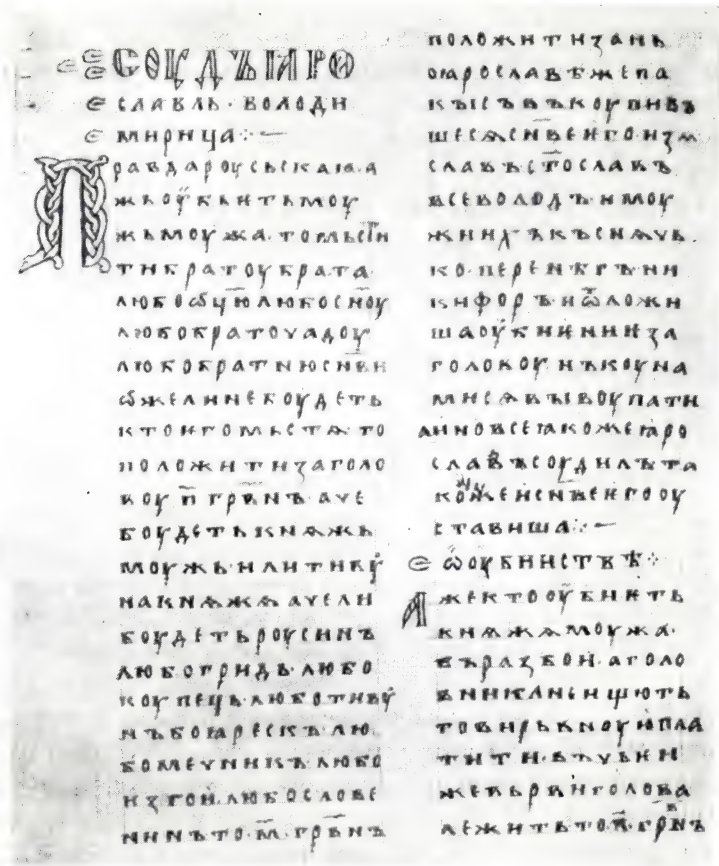 СОУДЪ ꙖРО
СЛАВЛЬ · ВОЛОДИ
МИРИЦА
ПРАВДА РОУСЬСКАꙖ · А
ЖЬ ОУБЬЮТЬ МОУ
ЖЬ МОУЖА · ТО МЬСТИ
ТИ БРАТОУ БРАТА
ЛЮБО ѾЦЮ ЛЮБО СНОУ
ЛЮБО БРАТОУЧАДОУ
ЛЮБО БРАТНЮ СНВИ
ѠЖЕ ЛИ НЕ БОУДЕТЬ
КТО ѤГО МЬСТѦ ТО
ПОЛОЖИТИ ЗА ГОЛО
ВОУ П ГРВНЪ · АЧЕ
БОУДЕТЬ КНѦЖЬ
МОУЖЬ ИЛИ ТИВУ
НА КНѦЖѦ АЧЕ ЛИ
БОУДЕТЬ РОУСИНЪ
ЛЮБО ГРИДЬ ЛЮБО
КОУПЕЦЬ ЛЮБО ТИВУ
НЪ БОꙖРЕСКЪ ЛЮ
БО МЕЧНИКЪ ЛЮБО
ИЗГОИ ЛЮБО СЛОВЕ
НИНЪ ТО · М · ГРВНЪ
ПОЛОЖИТИ ЗА НЬ
О ꙖРОСЛАВѢ ЖЕ ПА
КЫ СЪВЪКОУПИВЪ
ШЕСѦ СНВЕ ѤГО · ИЗѦ
СЛАВЪ СТОСЛАВЪ
ВСЕВОЛОДЪ И МОУ
ЖИ ИХЪ КЪСНѦЧЬ
КО · ПЕРЕНѢГЪ НИ
КИФОРЪ И ѾЛОЖИ
ША ОУБИЕНИЕ ЗА
ГОЛОВОУ · НЪ КОУНА
МИ СѦ ВЫКОУПАТИ
А ИНО ВСЕ ꙖКОЖЕ ꙖРО
СЛАВЪ СОУДИЛЪ ТА
КОЖЕ И СНВЕ ѤГО ОУ
СТАВИША
Ѡ ОУБИИСТВѢ
АЖЕ КТО ОУБИѤТЬ
КНѦЖѦ МОУЖА ·
ВЪ РАЗБОИ · А ГОЛО
ВНИКА НЕ ИЩЮТЬ
ТО ВИРЬВНОУЮ ПЛА
ТИТИ · ВЪ ЧЬЕИ
ЖЕ ВЬРВИ ГОЛОВА
ЛЕЖИТЬ ТО · П · ГРВНЪ